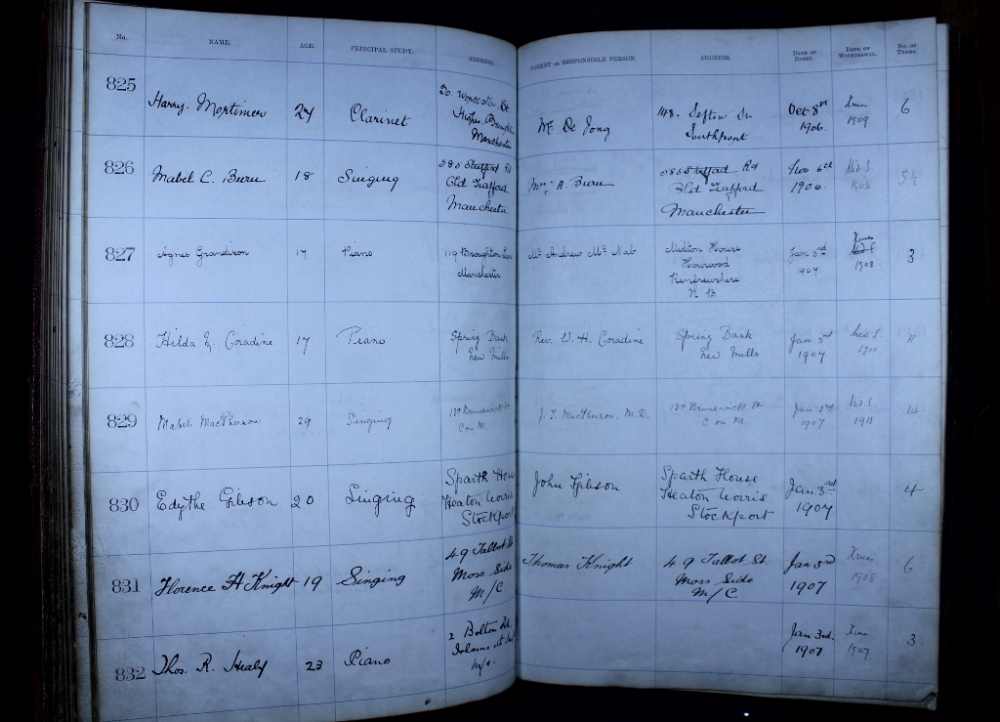 No. NAME. AGE. PRINCIPAL STUDY. ADDRESS. PARENT OR RESPONSIBLE PERSON. ADDRESS. DATE OF ENTRY. DATE OF WITHDRAWAL. No. OF TERMS.
825 Harry Mortimer 24 Clarinet Mr De Jong 148. Sefton St Oct 8th 6
Manchester Southport 1906. 1909
826 Mabel C. 18 Singing 385 Stretford Rd Mrs A. 385 Stretford Rd Nov 6th 5½
Old Trafford Old Trafford 1906 1908
Manchester Manchester
827 Agnes Grandison 17 Piano 119 Broughton Lane Mr Andrew Mc Nab House Jan 3rd Xmas 3
Manchester Howwood 1907 1908
Renfrewshire
N. B.
828 Hilda E. Coradine 17 Piano Spring Bank Rev. W. H. Coradine Spring Bank Jan 3rd 11
New Mills New Mills 1907
829 Mabel MacPherson 29 Singing Brunswick St J. F. MacPherson, M.D. Brunswick St Jan 3rd
C on M. C on M. 1907 1911
830 Edythe Gibson 20 Singing Sparth House John Gibson Sparth House Jan 3rd 4
Heaton Norris Heaton Norris 1907
Stockport Stockport
831 Florence A Knight 19 Singing 49 Talbot St Thomas Knight 49 Talbot St Jan 3rd Xmas 6
Moss Side Moss Side 1907 1908
M/C M/C
832 Thos. R. Healy 23 Piano 2 Bolton Rd Jan 3rd. 3
M/c. 1907 1907